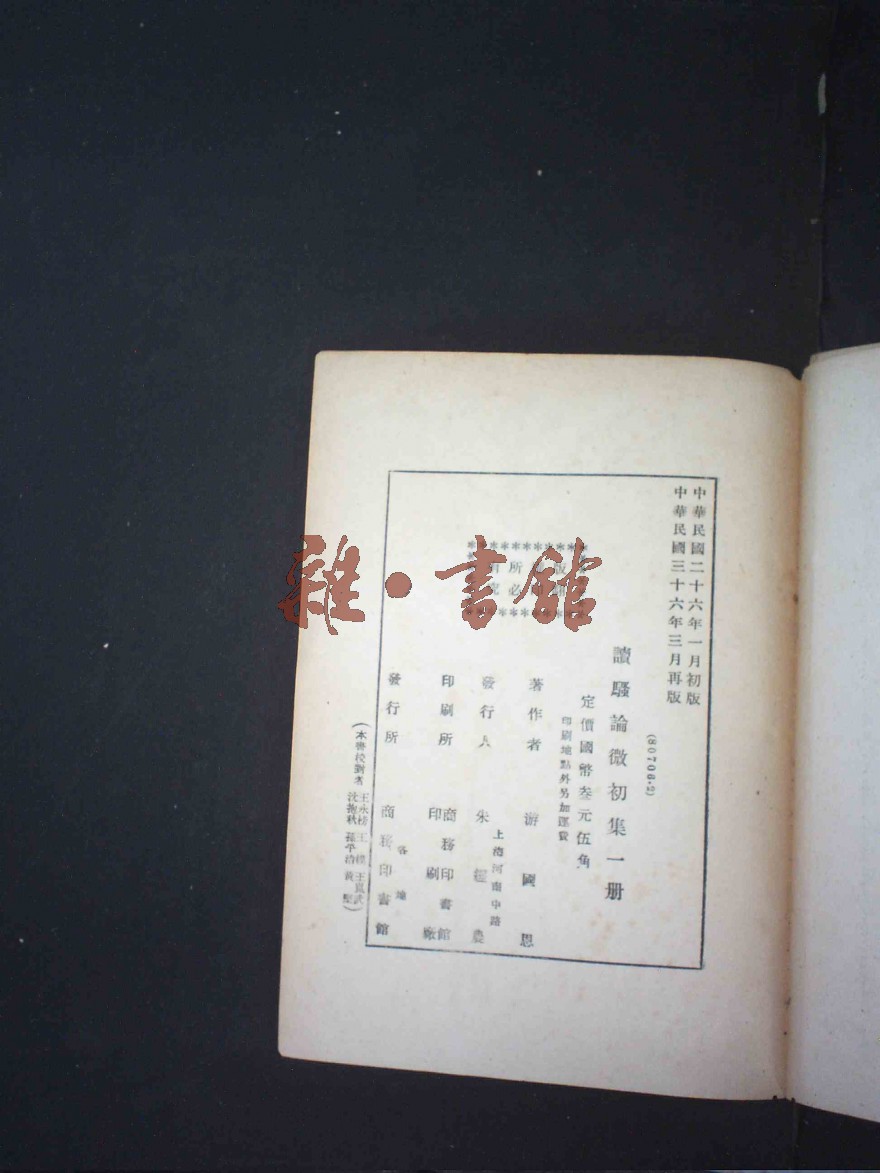 中華民國二十六年一月初版
中華民國三十六年三月再版
(80706·2)
讀騷論微初集一册
定價國幣叁元伍角
印刷地點外另加運費
版權所有
必究
著作者 游國恩
上海河南中路
發行人 朱經農
印刷所 商務印書館
印刷廠
各地
發行所 商務印書館
(本書校對者
雜·書館